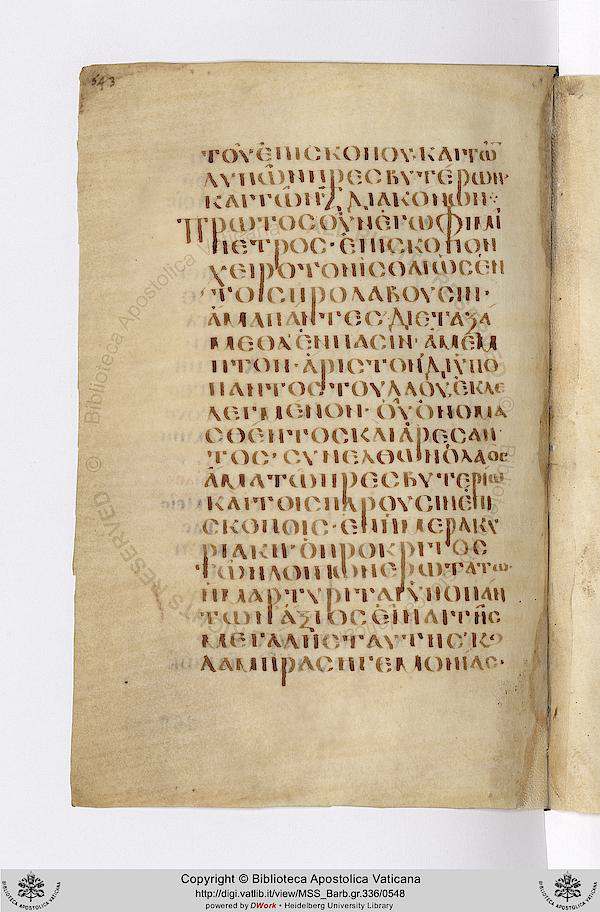 543
ΤΟΥ ΕΠΙΣΚΟΠΟΥ· ΚΑΙ ΤΩ̅
ΛΥΠΩΝ ΠΡΕΣΒΥΤΕΡΩΝ·
ΚΑΙ ΤΩΝ Ζ ΔΙΑΚΟΝΩΝ:
ΠΡΩΤΟΣ ΟΥΝ ΕΓΩ ΦΙΜΙ
ΠΕΤΡΟΣ· ΕΠΙΣΚΟΠΟΝ
ΧΕΙΡΟΤΟΝΙΣΘΑΙ ΩΣ ΕΝ
ΤΟΙΣ ΠΡΟΛΑΒΟΥΣΙΝ·
ΑΜΑ ΠΑΝΤΕΣ ΔΙΕΤΑΞΑ
ΜΕΘΑ ΕΝ ΠΑΣΙΝ· ΑΜΕΜ
ΠΤΟΝ· ΑΡΙΣΤΟΝΔΙΝ ΥΠΟ
ΠΑΝΤΟΣ ΤΟΥ ΛΑΟΥ ΕΚΛΕ
ΛΕΓΜΕΝΟΝ· ΟΥ ΟΝΟΜΑ
ΣΘΕΝΤΟΣ ΚΑΙ ΑΡΕΣΑΝ
ΤΟΣ· ΣΥΝΕΛΘΩΝ Ο ΛΑΟΣ
ΑΜΑ ΤΩ ΠΡΕΣΒΥΤΕΡΙΩ
ΚΑΙ ΤΟΙΣ ΠΑΡΟΥΣΙΝ ΕΠΙ
ΣΚΟΠΟΙΣ· ΕΝ ΙΜΕΡΑ ΚΥ
ΡΙΑΚΗ· Ο ΠΡΟΚΡΙΤΟΣ
ΤΩΝ ΛΟΙΠΩΝ ΕΡΩΤΑΤΩ·
ΗΜΑΡΤΥΡΙΤΑΙ ΥΠΟ ΠΑΝ
ΤΩΝ ΑΞΙΟΣ ΕΙΝΑΙ ΤΗΣ
ΜΕΓΑΛΗΣ ΤΑΥΤΗΣ Κ
ΛΑΜΠΡΑΣ ΗΓΕΜΟΝΙΑΣ·
Copyright © Biblioteca Apostolica Vaticana
http://digi.vatlib.it/view/MSS_Barb.gr.336/0548
powered by DWork • Heidelberg University Library